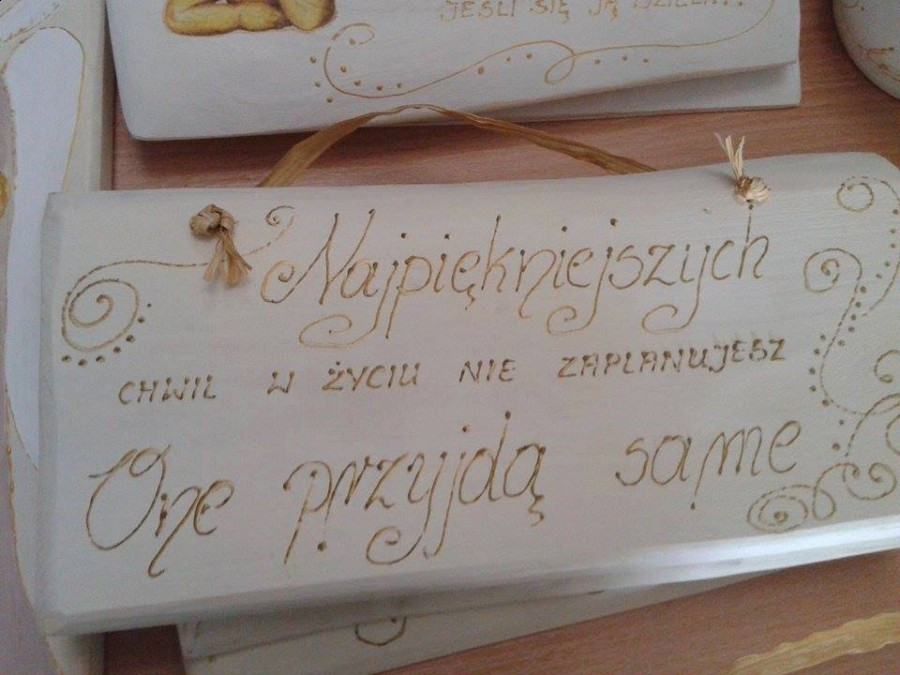 JEŚLI SIĘ JĄ DZIELI...
Najpiękniejszych
CHWIL W ŻYCIU NIE ZAPLANUJESZ
One przyjdą same